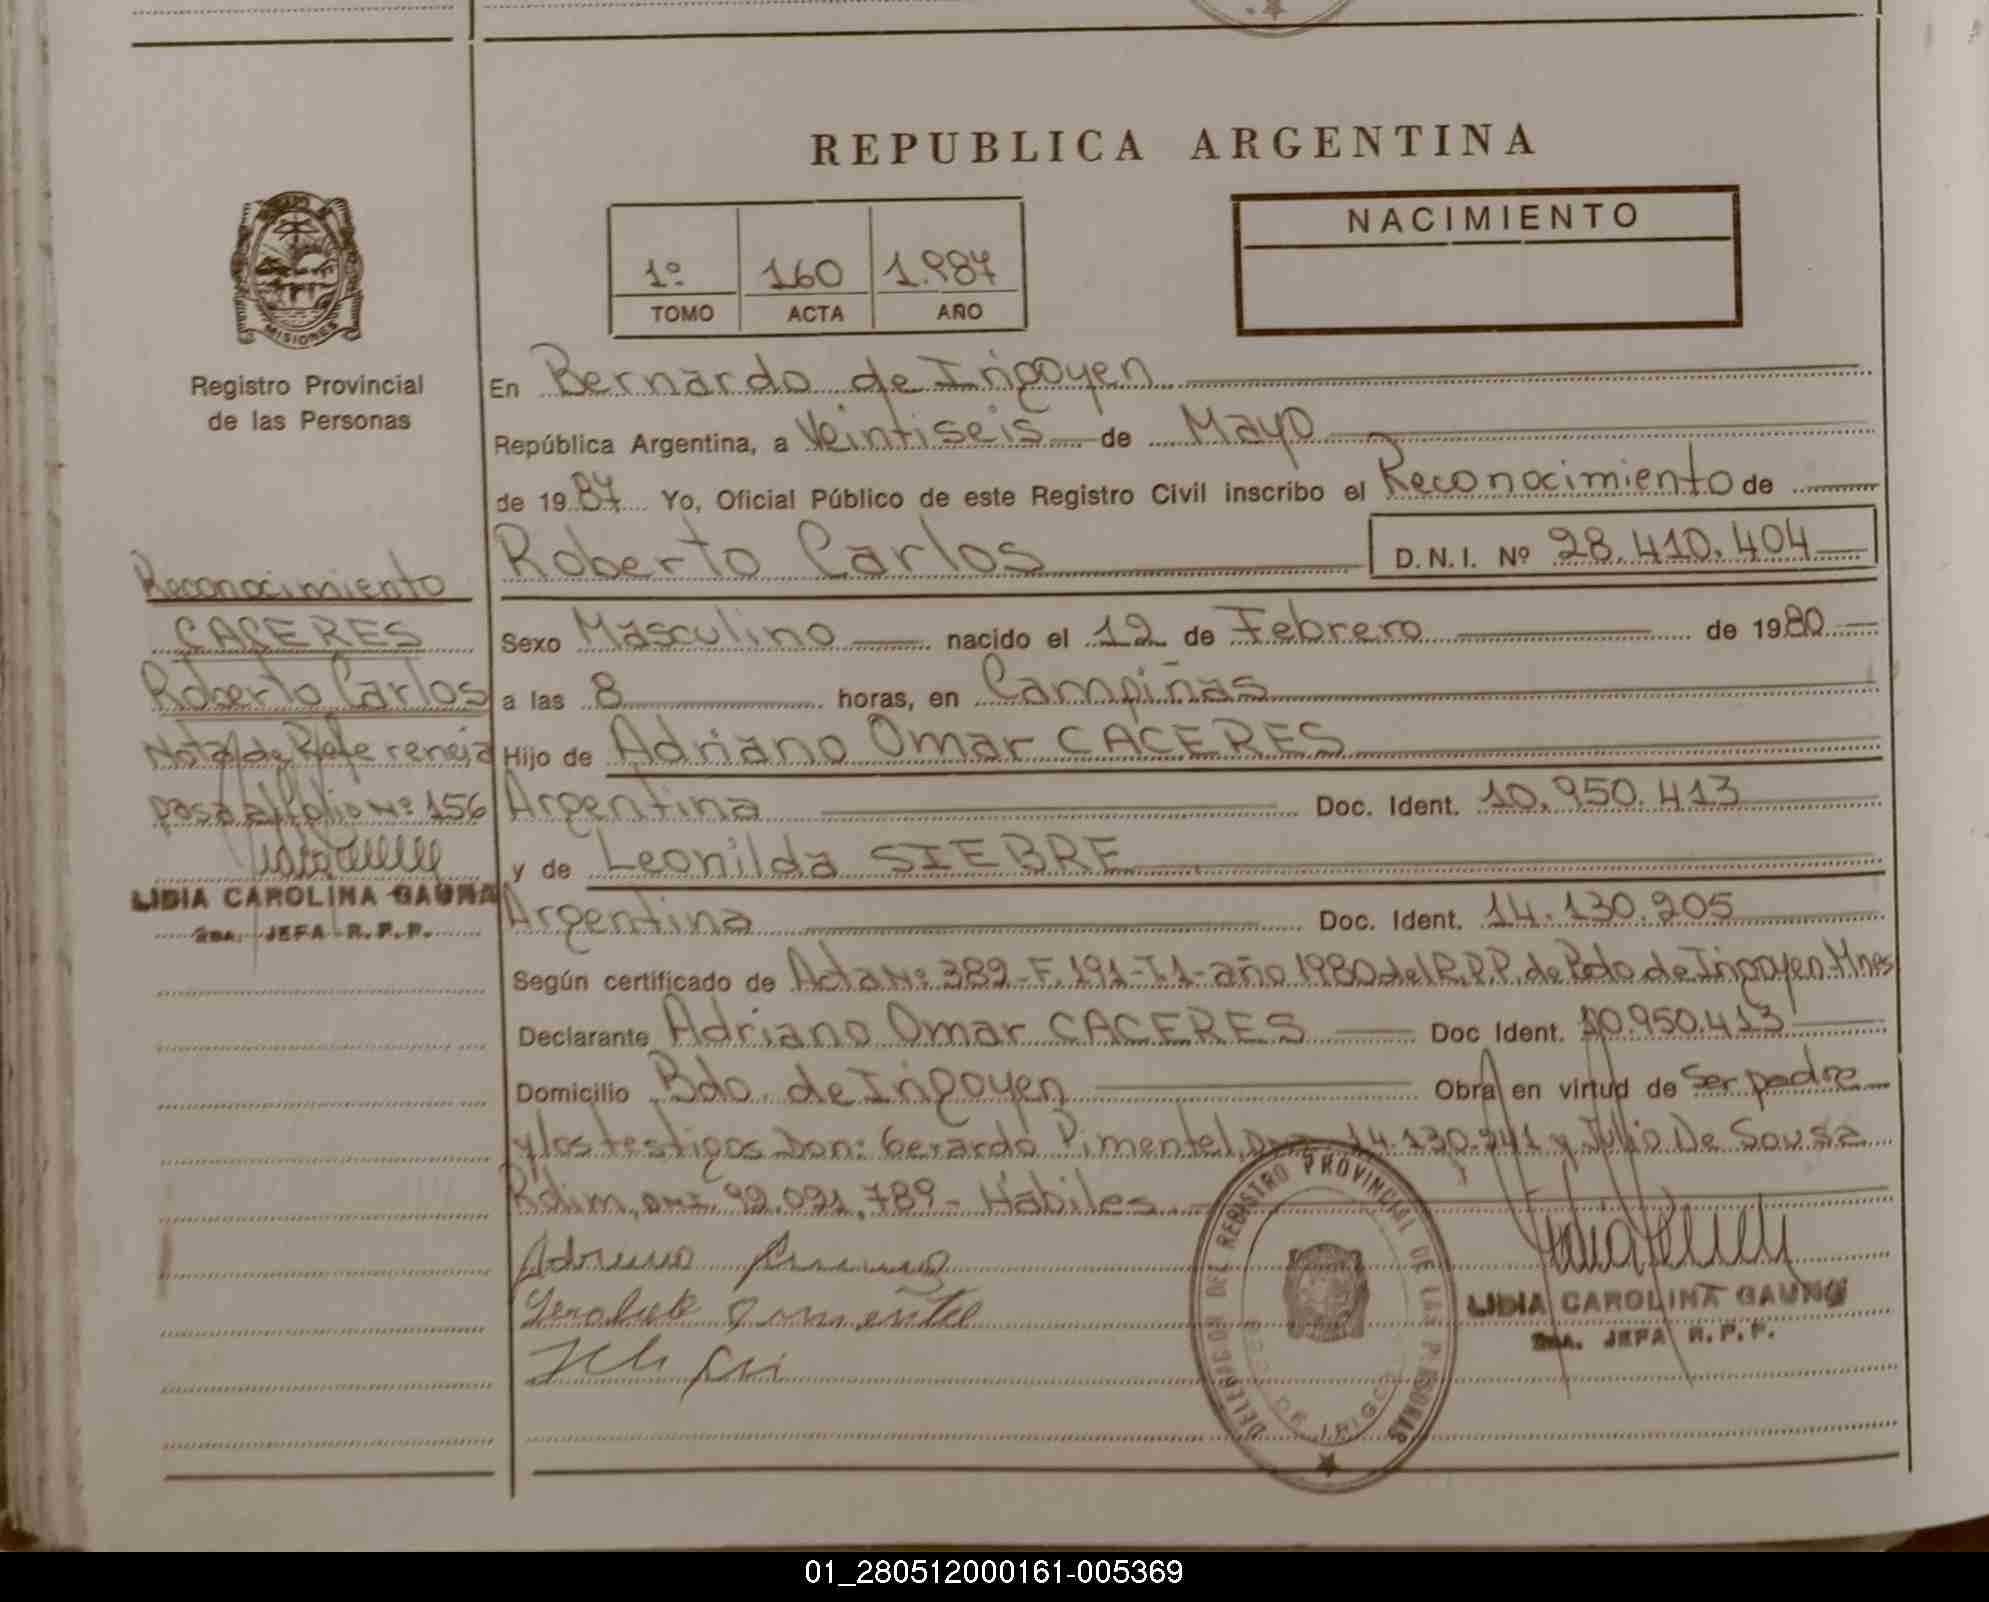 REPUBLICA ARGENTINA
NACIMIENTO
1º 160 1.987
TOMO ACTA AÑO
MISIONES
Registro Provincial
de las Personas
En Bernardo de Irigoyen
República Argentina, a Veintiseis de Mayo
de 1987 Yo, Oficial Público de este Registro Civil inscribo el Reconocimiento de
Roberto Carlos D.N.I. Nº 28.410.404
Sexo Masculino nacido el 12 de Febrero de 1980
a las 8 horas, en Campiñas
Hijo de Adriano Omar CACERES
Argentina Doc. Ident. 10.950.413
y de Leonilda SIEBRE
Argentina Doc. Ident. 14.130.205
Según certificado de Acta Nº 389-F.191-T.1-año 1980 del R.P.P. de Bdo de Irigoyen. Mnes
Declarante Adriano Omar CACERES Doc Ident. 10.950.413
Domicilio Bdo. de Irigoyen Obra en virtud de Ser padre
y los testigos Don: Gerardo Pimentel, 14.130.941 y Julio De Souza
92.091.789 - Habiles
Reconocimiento
CACERES
Roberto Carlos
Nota de Referencia
pasa al folio Nº 156
LIDIA CAROLINA GAUNA
JEFA R.P.P.
DELEGACION DEL REGISTRO PROVINCIAL DE LAS PERSONAS
LIDIA CAROLINA GAUNA
JEFA R.P.P.
01_280512000161-005369